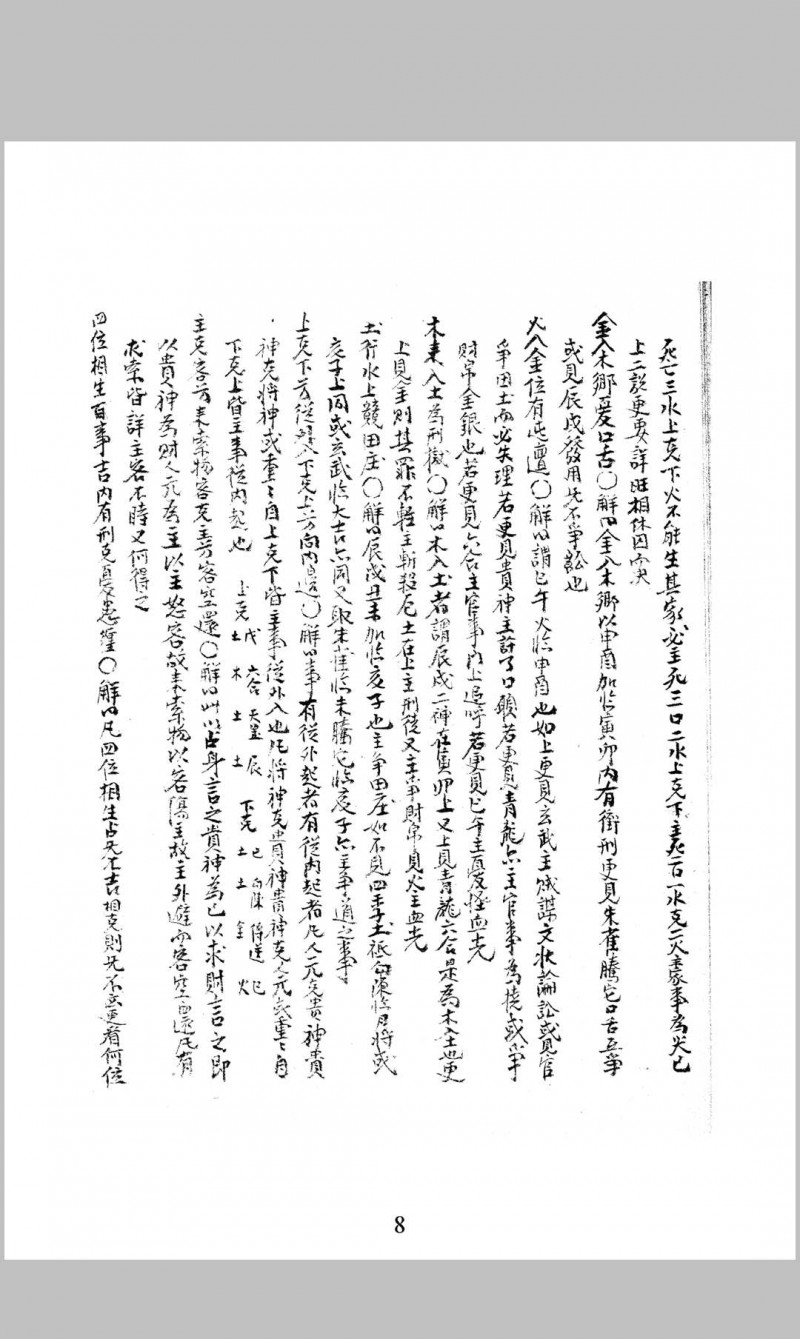 死亡三水上克下火不能生其家必主死三口二水上克下主死一口一水克二火主喪事為災已
上二説更要詳旺相休囚而决
金入木鄉憂口舌〇解曰金入木鄉以申酉加臨寅卯内有衝刑更見朱雀騰蛇口舌互爭
或見辰戌發用先不爭訟也
火入金位有迍邅〇解曰謂巳午火臨申酉也如上更見玄武主賊謀文狀論訟或見官
爭田土而必失理若更見貴神主許了口願若更見青龍六主官事為撓或爭
財帛金銀也若更見六合主官事門上追呼若更見巳午主憂怪血光
木來入土為刑獄〇解曰木入土者謂辰戌二神在寅卯上又上見青龍六合是為木入土也更
上見金則其罪不輕主斬殺如土在上主刑徒又主爭財帛見火主血光
土行水上競田庄〇解曰辰戌丑未加臨亥子也主爭田庄如不見四季土祗勾陳臨月將或
亥子上同或玄武臨大吉亦同又取朱雀臨未騰蛇臨亥子亦主爭之事
上克下兮從外入下克上兮向内邊〇解曰事有從外起者有從内起者凡人元克貴神貴
神克將神或重重自上克下皆主事從外入也凡將神克貴神貴神克人元或重重自
下克上皆主事從内起也
上克 戊土 六合木 天罡土 辰土 下克 己土 勾陳土 傳送金 巳火
主克客兮來索物客克主兮客空還〇解曰此以占身言之貴神為己以求財言之即
以貴神為財人元為主以主怒客故來索物以客傷主故主外避而客空還凡有
求索皆詳主客不時又何得之
四位相生百事吉内有刑克憂患纏〇解曰凡四位相生占先不吉相克則先不看何位
8